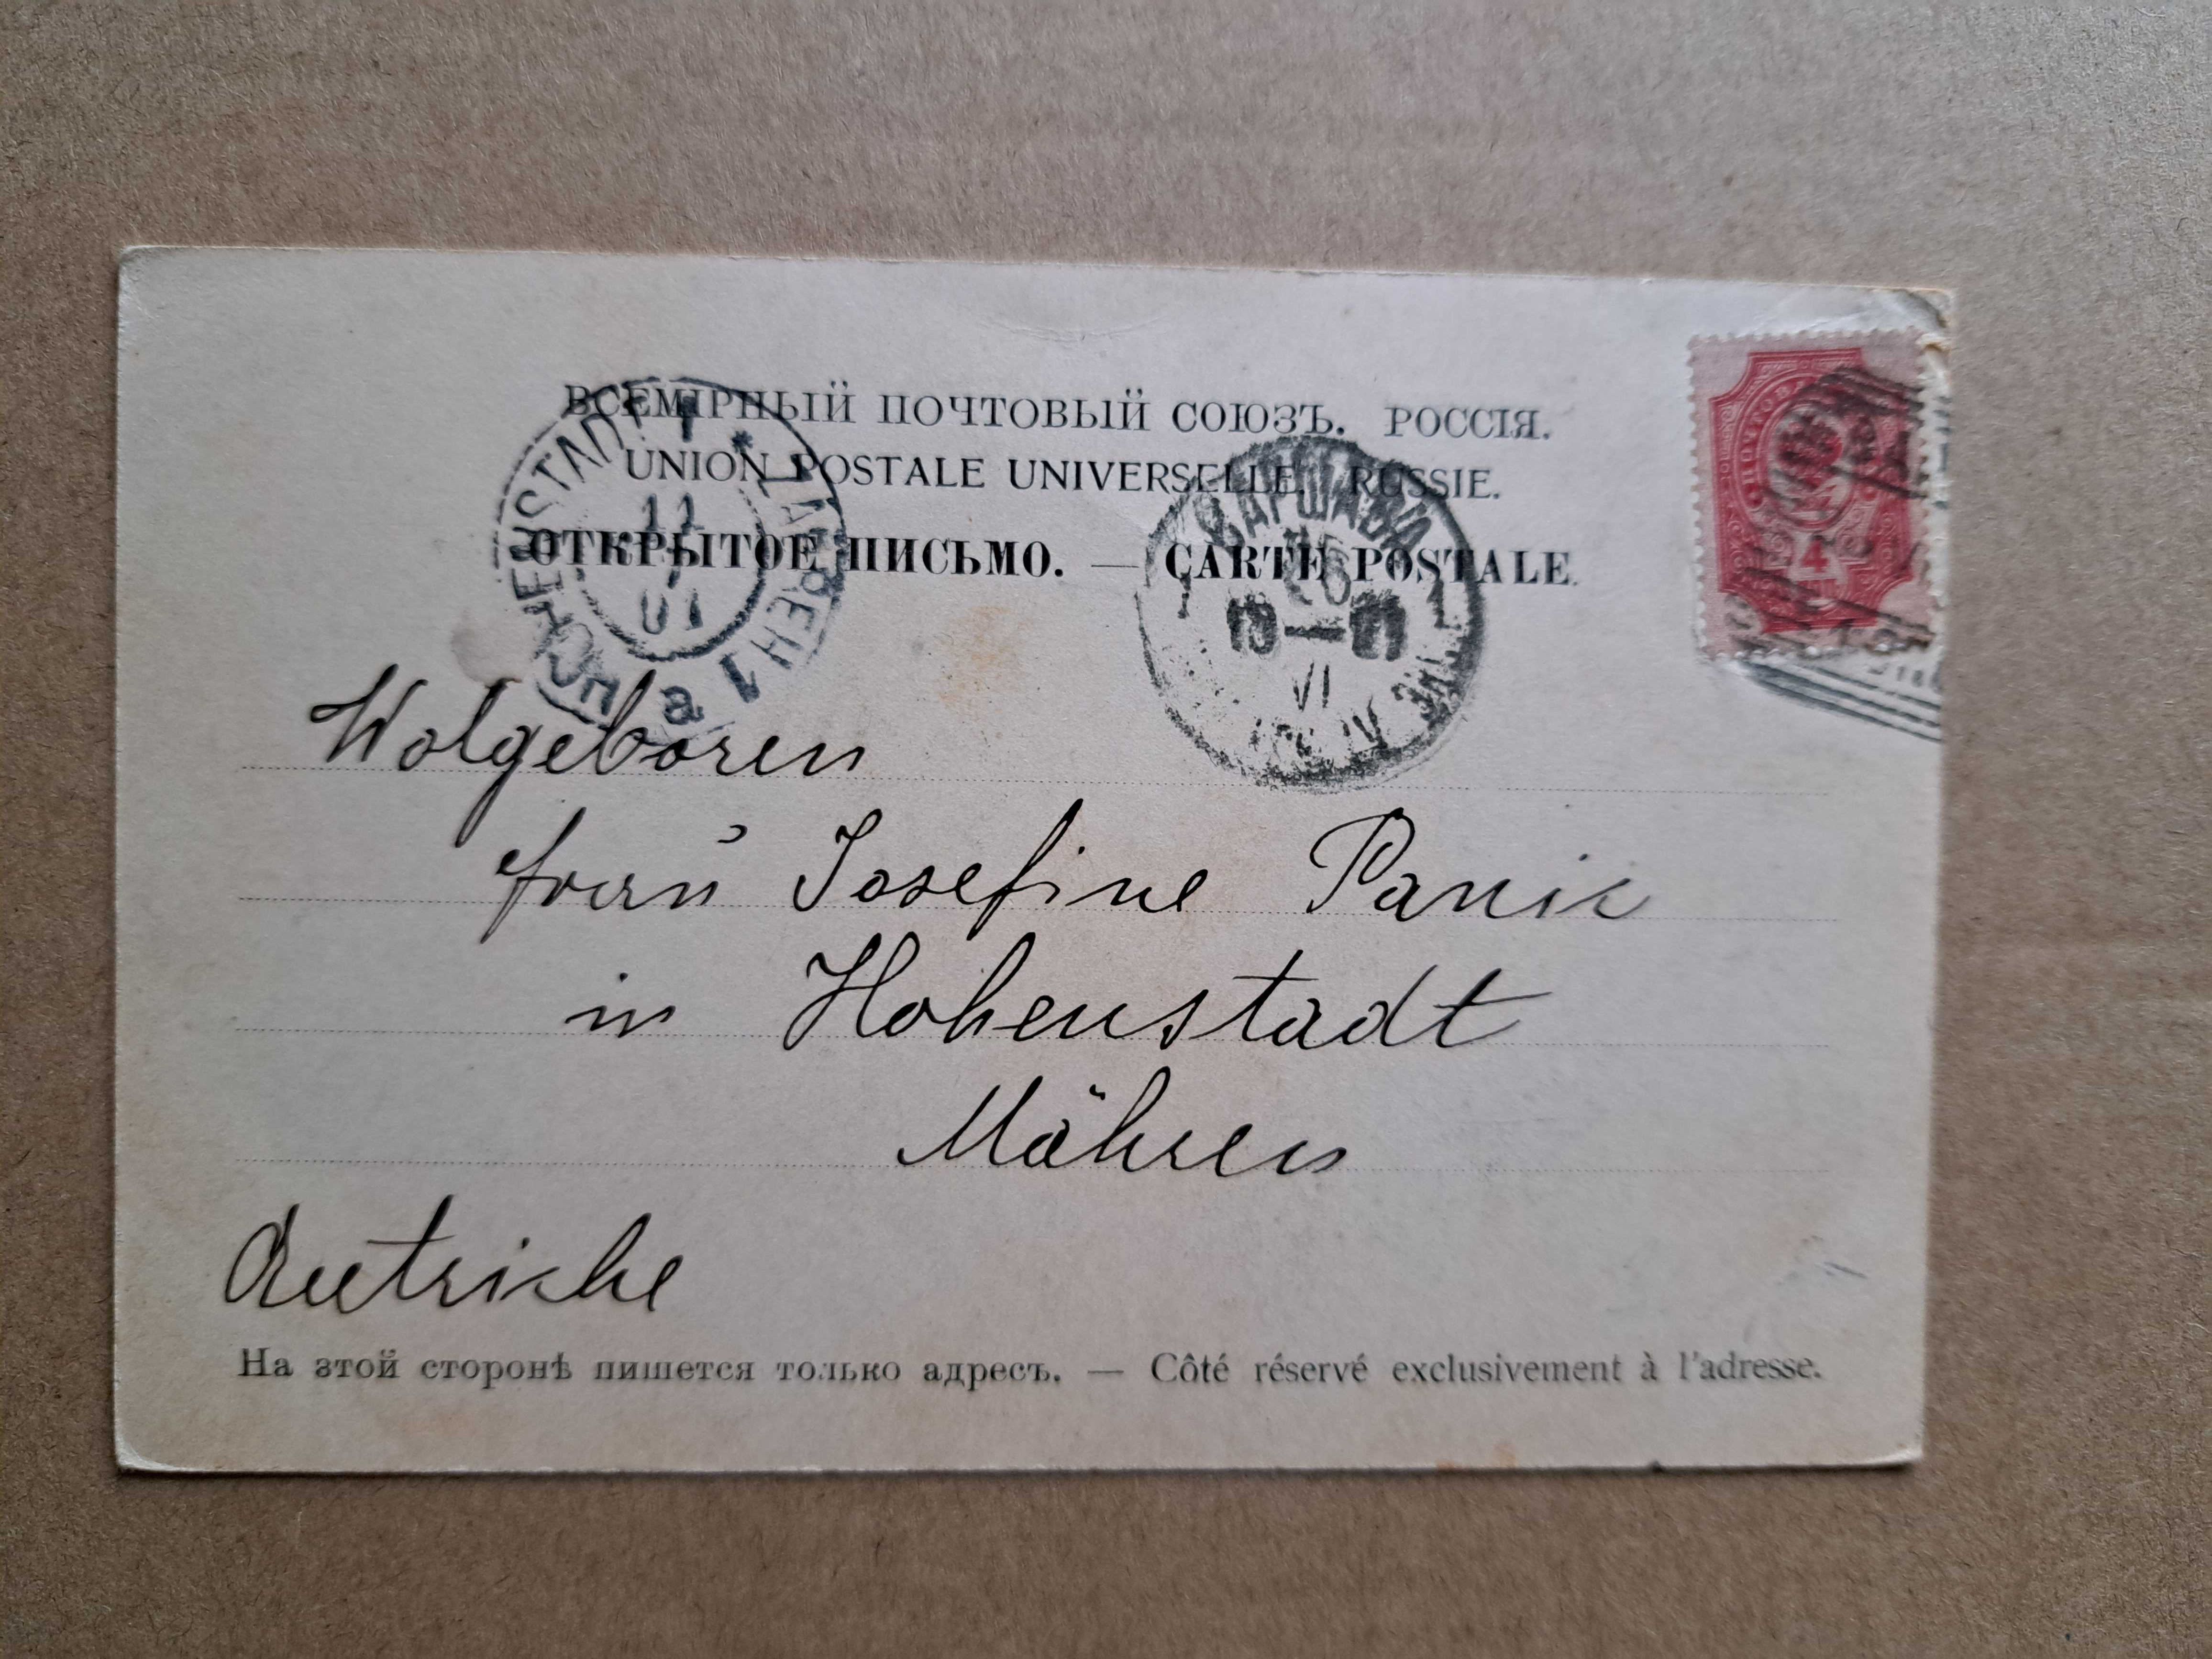 ВСЕМІРНЫЙ ПОЧТОВЫЙ СОЮЗЪ. РОССІЯ.
UNION POSTALE UNIVERSELLE. RUSSIE.
ОТКРЫТОЕ ПИСЬМО. — CARTE POSTALE.
HOHENSTADT
11
7
01
a
ВАРШАВА
26
19—01
VI
4
Wolgeboren
Frau Josefine Panic
in Hohenstadt
Mähren
Autriche
На этой сторонѣ пишется только адресъ. — Côté réservé exclusivement à l'adresse.